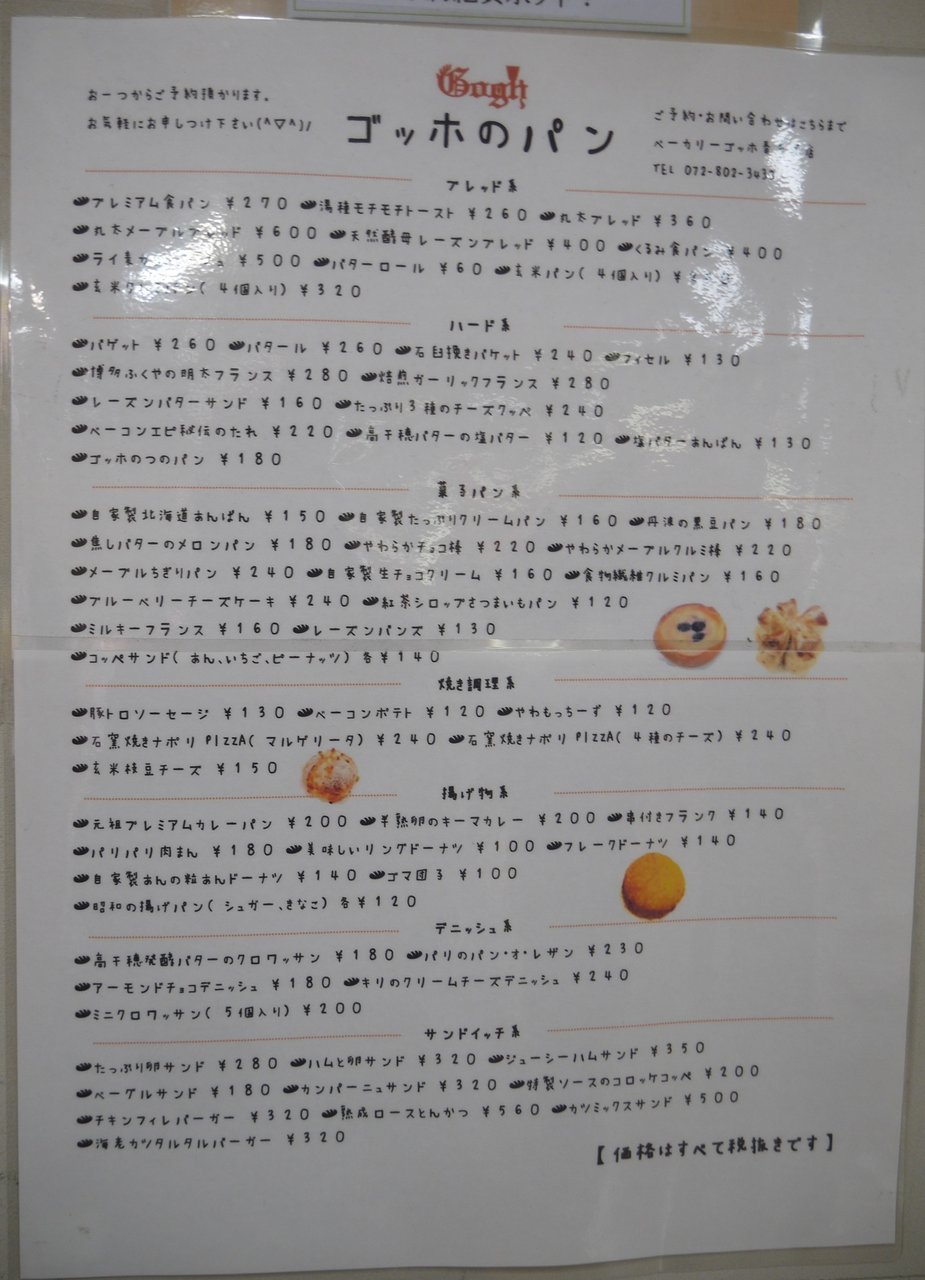 Gogh
おーつからご予約預かります。
お気軽にお申しつけ下さい(^▽^)/
ゴッホのパン
ご予約・お問い合わせはこちらまで
ベーカリーゴッホ
TEL 072-802-343
ブレッド系
プレミアム食パン ¥270 湯種モチモチトースト ¥260 丸太ブレッド ¥360
丸太メープルブレッド ¥600 天然酵母レーズンブレッド ¥400 くるみ食パン ¥400
ライ麦 ¥500 バターロール ¥60 玄米パン(4個入り) ¥
玄米 (4個入り) ¥320
ハード系
バゲット ¥260 バタール ¥260 石臼挽きバゲット ¥240 フィセル ¥130
博多ふくやの明太フランス ¥280 焙煎ガーリックフランス ¥280
レーズンバターサンド ¥160 たっぷり3種のチーズクッペ ¥240
ベーコンエピ秘伝のたれ ¥220 高千穂バターの塩バター ¥120 塩バターあんぱん ¥130
ゴッホのつのパン ¥180
菓子パン系
自家製北海道あんぱん ¥150 自家製たっぷりクリームパン ¥160 丹波の黒豆パン ¥180
焦しバターのメロンパン ¥180 やわらかチョコ棒 ¥220 やわらかメープルクルミ棒 ¥220
メープルちぎりパン ¥240 自家製生チョコクリーム ¥160 食物繊維クルミパン ¥160
ブルーベリーチーズケーキ ¥240 紅茶シロップさつまいもパン ¥120
ミルキーフランス ¥160 レーズンバンズ ¥130
コッペサンド(あん、いちご、ピーナッツ) 各¥140
焼き調理系
豚トロソーセージ ¥130 ベーコンポテト ¥120 やわもっちーず ¥120
石窯焼きナポリPIZZA(マルゲリータ) ¥240 石窯焼きナポリPIZZA(4種のチーズ) ¥240
玄米枝豆チーズ ¥150
揚げ物系
元祖プレミアムカレーパン ¥200 半熟卵のキーマカレー ¥200 串付きフランク ¥140
パリパリ肉まん ¥180 美味しいリングドーナツ ¥100 フレークドーナツ ¥140
自家製あんの粒あんドーナツ ¥140 ゴマ団子 ¥100
昭和の揚げパン(シュガー、きなこ) 各¥120
デニッシュ系
高千穂発酵バターのクロワッサン ¥180 パリのパン・オ・レザン ¥230
アーモンドチョコデニッシュ ¥180 キリのクリームチーズデニッシュ ¥240
ミニクロワッサン(5個入り) ¥200
サンドイッチ系
たっぷり卵サンド ¥280 ハムと卵サンド ¥320 ジューシーハムサンド ¥350
ベーグルサンド ¥180 カンパーニュサンド ¥320 特製ソースのコロッケコッペ ¥200
チキンフィレバーガー ¥320 熟成ロースとんかつ ¥560 カツミックスサンド ¥500
海老カツタルタルバーガー ¥320
【価格はすべて税抜きです】